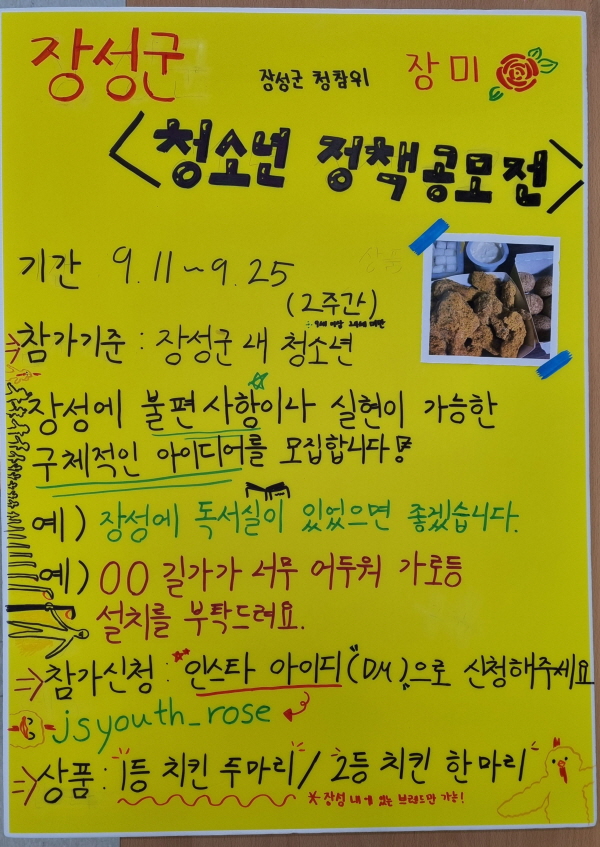 장성군 장성군 청참위 장미
<청소년 정책공모전>
기간 9.11~9.25
(2주간)
상품
※ 9세 이상 24세 이하
⇒참가기준 : 장성군 내 청소년
장성에 불편사항이나 실현이 가능한
구체적인 아이디어를 모집합니다!
예) 장성에 독서실이 있었으면 좋겠습니다.
예) OO 길가가 너무 어두워 가로등
설치를 부탁드려요.
⇒참가신청 : **인스타 아이디"(DM)"으로 신청해주세요
jsyouth_rose
⇒상품 : 1등 치킨 두마리 / 2등 치킨 한마리
*장성 내에 있는 브랜드만 가능!